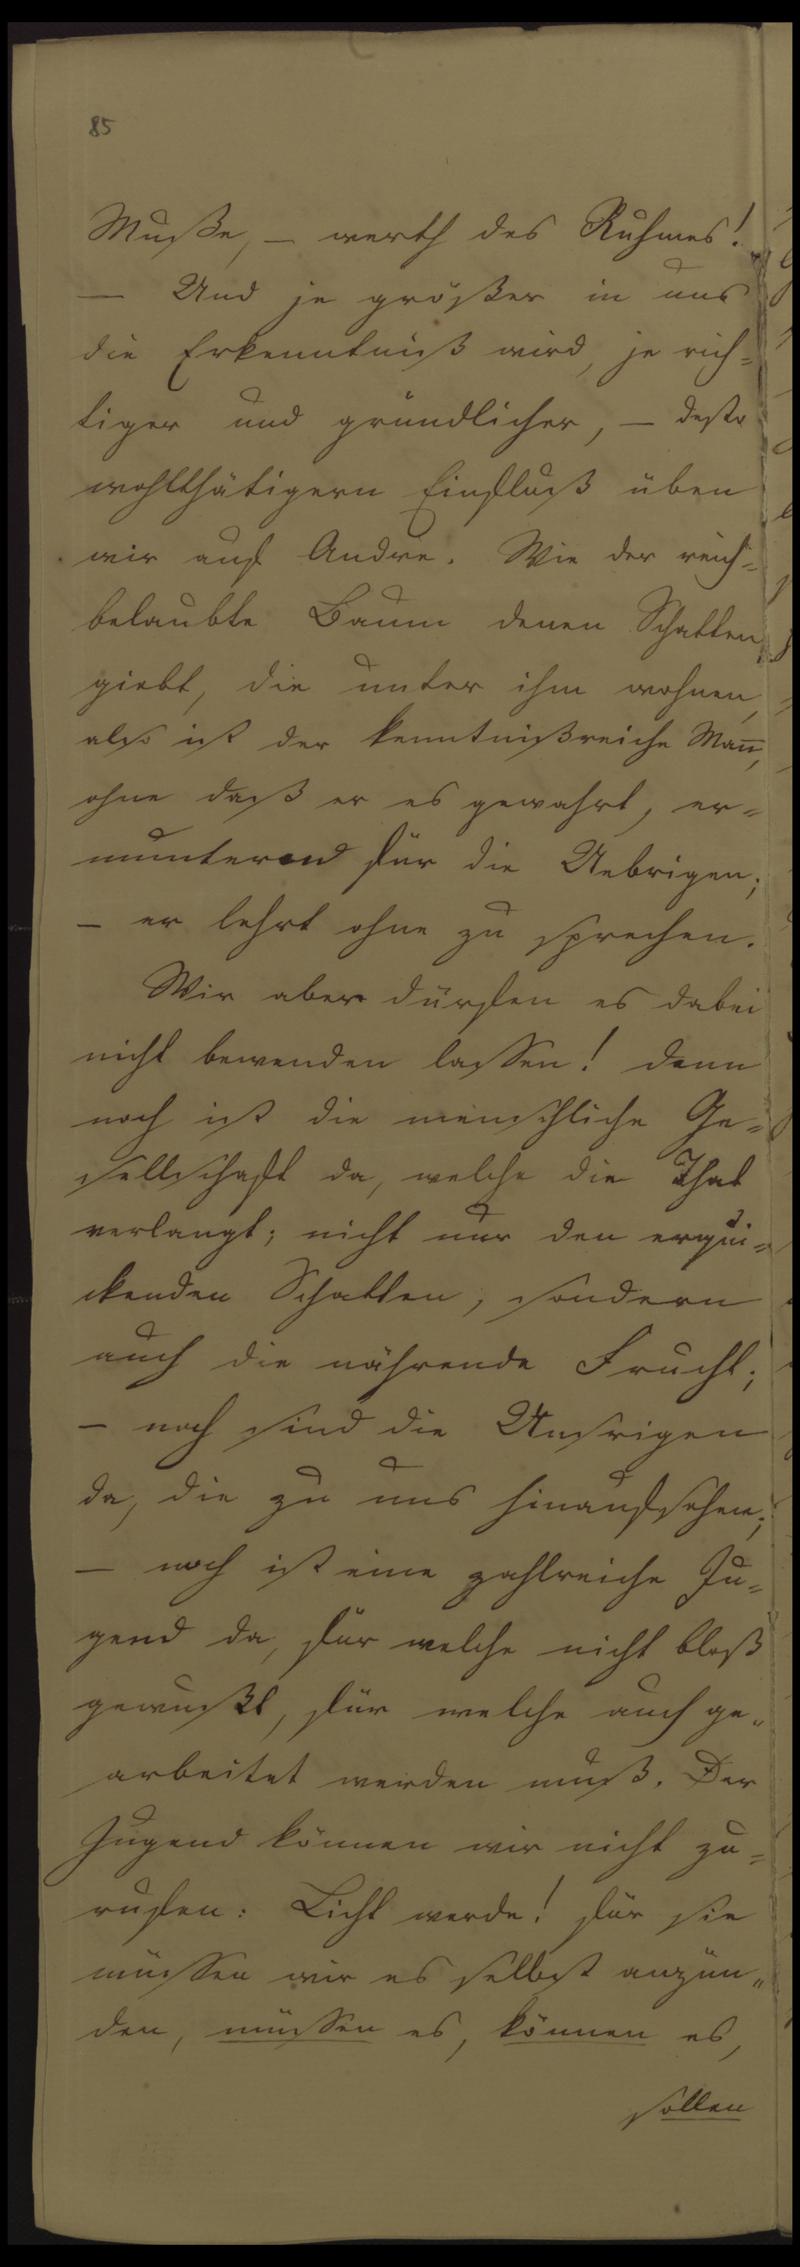 85
Muße, — werth des Ruhmes!
— Und je größer in uns
die Erkenntniß wird, je rich=
tiger und gründlicher, — desto
wohlthätigern Einfluß üben
wir auf Andre. Wie der reich=
belaubte Baum denen Schatten
giebt, die unter ihm wohnen,
also ist der kenntnißreiche Man̅,
ohne daß er es gewahrt, er=
munternd für die Uebrigen;
— er lehrt ohne zu sprechen.
Wir aber dürfen es dabei
nicht bewenden lassen! denn
noch ist die menschliche Ge=
sellschaft da, welche die That
verlangt; nicht nur den erqui=
ckenden Schatten, sondern
auch die nährende Frucht;
— noch sind die Unsrigen
da, die zu uns hinaufsehen;
— noch ist eine zahlreiche Ju=
gend da, für welche nicht bloß
gewußt, für welche auch ge=
arbeitet werden muß. Der
Jugend können wir nicht zu=
rufen: Licht werde! für sie
müssen wir es selbst anzün=
den, müssen es, können es,
sollen